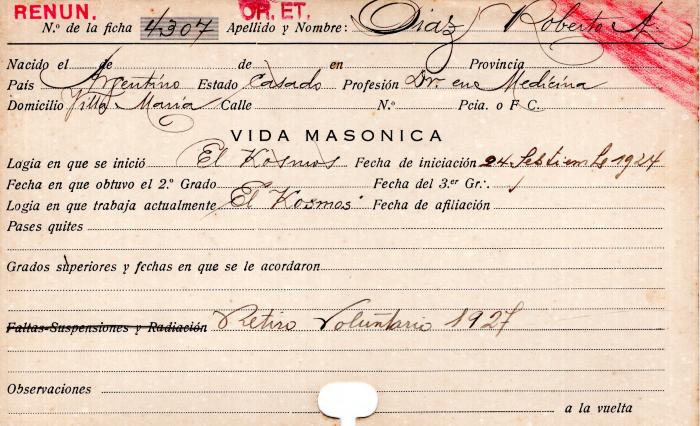 RENUN. OR. ET.
N.º de la ficha 4307 Apellido y Nombre: Diaz Roberto A.
Nacido el de de en Provincia
País Argentino Estado Casado Profesión Dr. en Medicina
Domicilio Villa María Calle N.º Pcia. o F C.
VIDA MASONICA
Logia en que se inició El Kosmos Fecha de iniciación 24 Septiembre 1924
Fecha en que obtuvo el 2.º Grado Fecha del 3.er Gr.·.
Logia en que trabaja actualmente El Kosmos Fecha de afiliación
Pases quites
Grados superiores y fechas en que se le acordaron
Faltas-Suspensiones y Radiación Retiro Voluntario 1927
Observaciones
a la vuelta